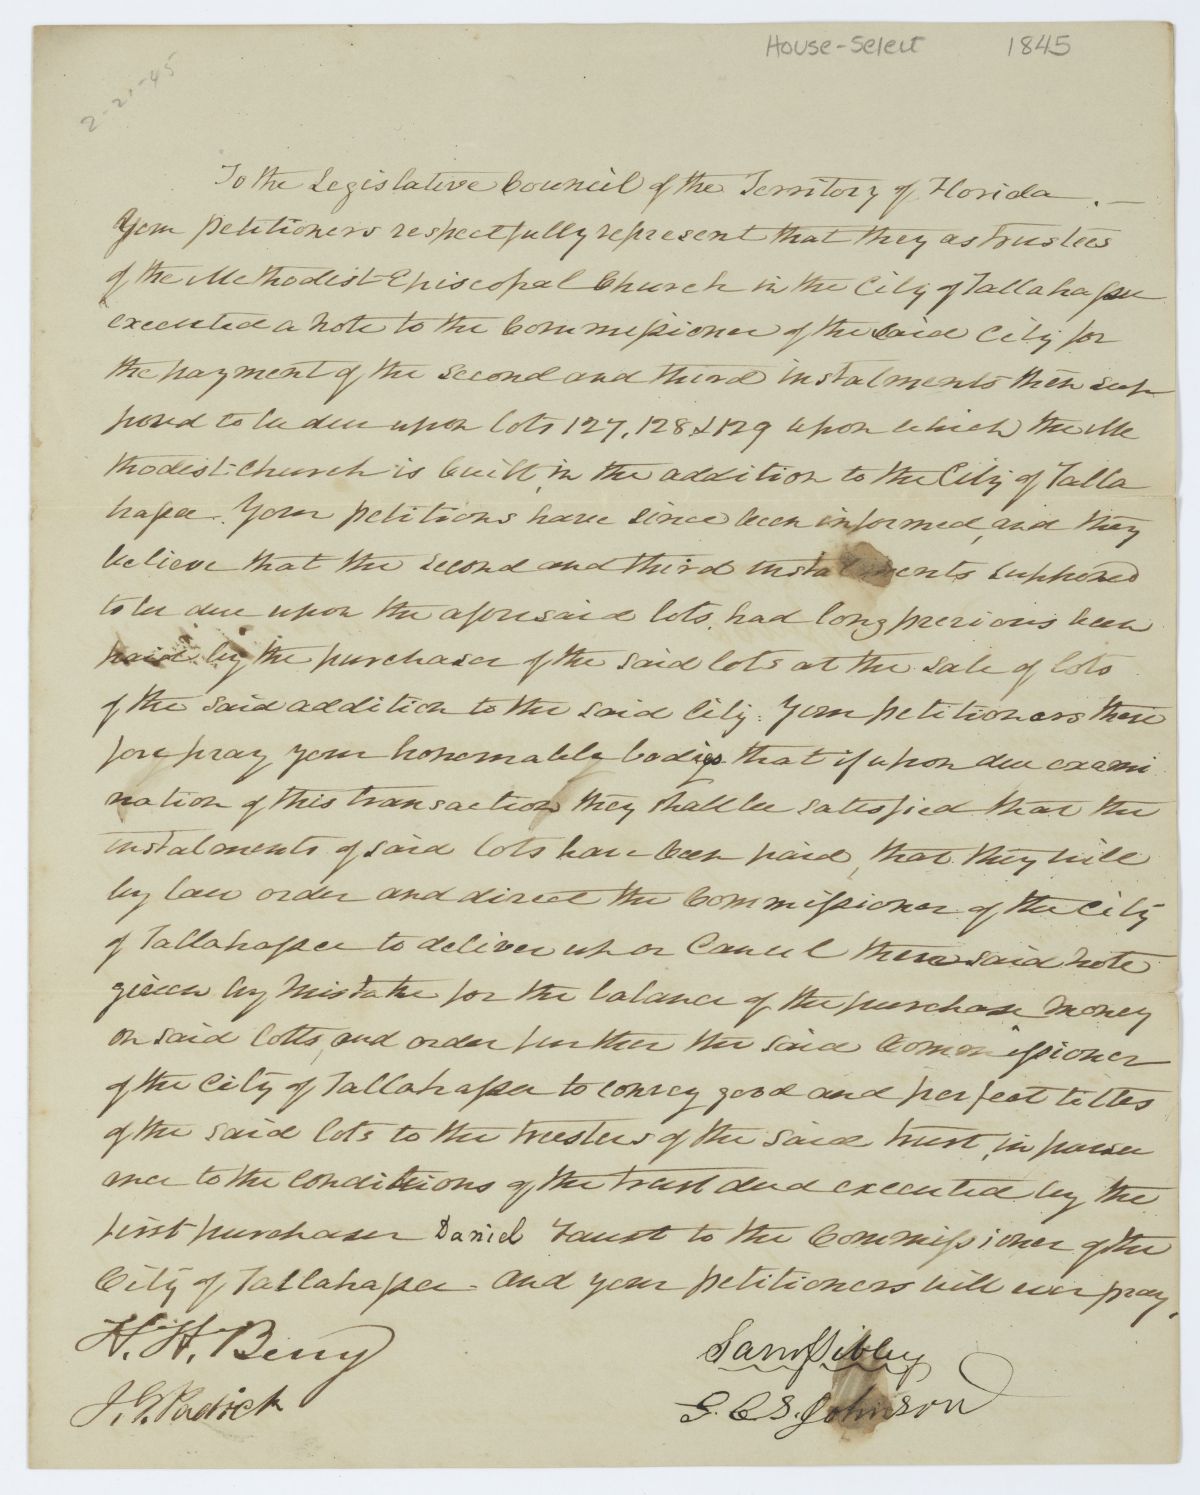 House-Select 1845
2-21-45
To the Legislative Council of the Territory of Florida. —
Your petitioners respectfully represent that they as trustees
of the Methodist Episcopal Church in the City of Tallahassee
executed a note to the Commissioner of the said City for
the payment of the second and third instalments then sup
posed to be due upon lots 127, 128 & 129 upon which the Me
thodist Church is built, in the addition to the City of Talla
hassee. Your petitions have since been informed, and they
believe that the second and third instalments supposed
to be due upon the aforesaid lots, had long previous been
paid by the purchaser of the said lots at the sale of lots
of the said addition to the said City. Your petitioners there
fore pray your honorable bodies that if upon due exami
nation of this transaction they shall be satisfied that the
instalments of said lots have been paid, that they will
by law order and direct the Commissioner of the City
of Tallahassee to deliver up or Cancel there said note
given by mistake for the balance of the purchase money
on said lotts, and order further the said Commissioner
of the City of Tallahassee to convey good and perfect titles
of the said lots to the trustees of the said trust, in pursu
ance to the conditions of the trust deed executed by the
first purchaser Daniel Faust to the Commissioner of the
City of Tallahassee - and your petitioners will ever pray.
H. H. Berry
Sam Sibley
J. G. Padrick
G. C. S. Johnson